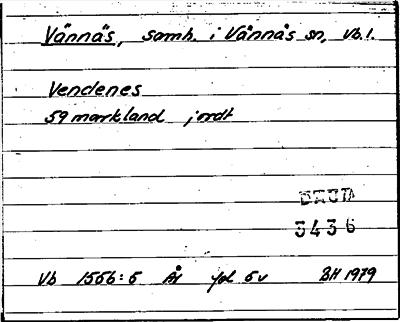 Vännäs, samh. i Vännäs sn, Vb. l.
Vendenes
59 markland jordt
3436
Vb 1556:5 År fol 5v BH 1979